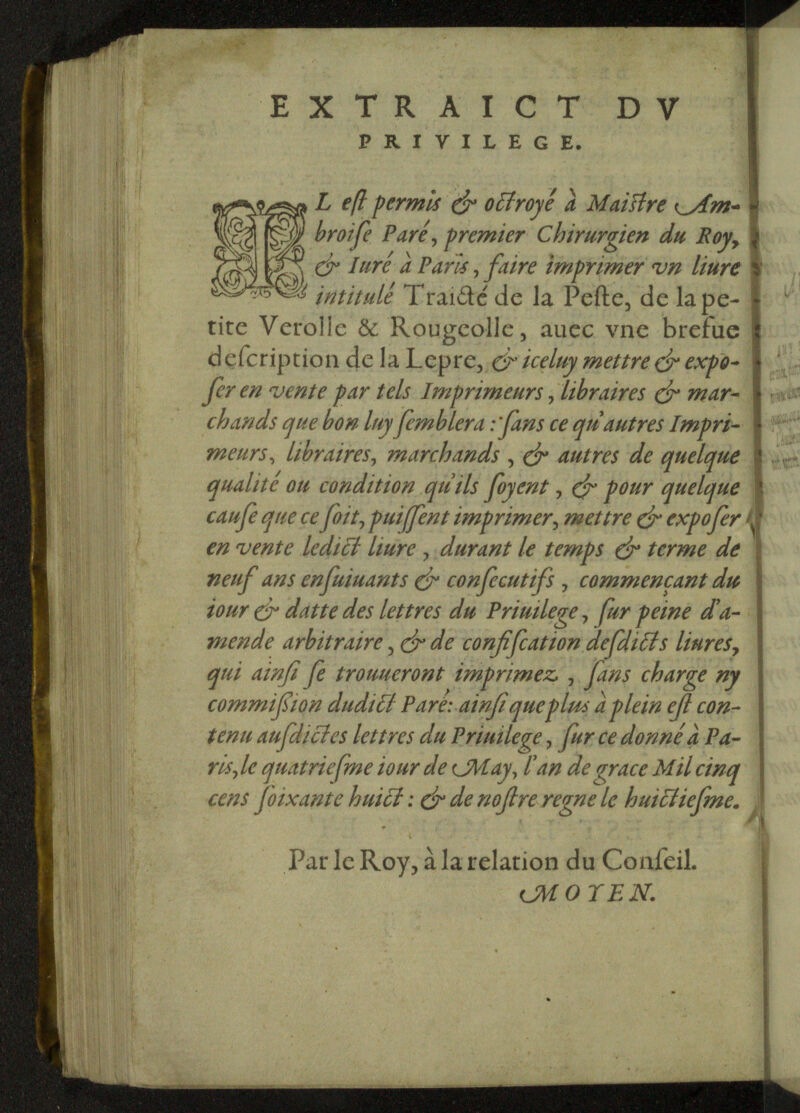 EXTRAICT DV
PRIVILEGE.
IL eſt permis & octroyé à Maiſtre Am-
broiſe Paré, premier Chirurgien du Roy,
& Iuré à Paris, faire imprimer vn liure
intitulé Traicté de la Peſte, de la pe-
tite Verolle & Rougeolle, auec vne brefue
deſcription de la Lepre, & iceluy mettre & expo-
ſer en vente par tels Imprimeurs, libraires & mar-
chands que bon luy ſemblera : ſans ce qu'autres Impri-
meurs, libraires, marchands , & autres de quelque
qualité ou condition qu'ils ſoyent, & pour quelque
cauſe que ce ſoit, puiſſent imprimer, mettre & expoſer
en vente ledict liure , durant le temps & terme de
neuf ans enſuiuants & conſecutifs , commençant du
iour & datte des lettres du Priuilege, ſur peine d'a-
mende arbitraire, & de confiſcation deſdicts liures,
qui ainſi ſe trouueront imprimez , ſans charge ny
commiſsion dudict Paré: ainſi que plus à plein eſt con-
tenu auſdictes lettres du Priuilege, ſur ce donné à Pa-
ris, le quatrieſme iour de May, l'an de grace Mil cinq
cens ſoixante huict : & de noſtre regne le huictieſme.
Par le Roy, à la relation du Conſeil.
MOYEN.